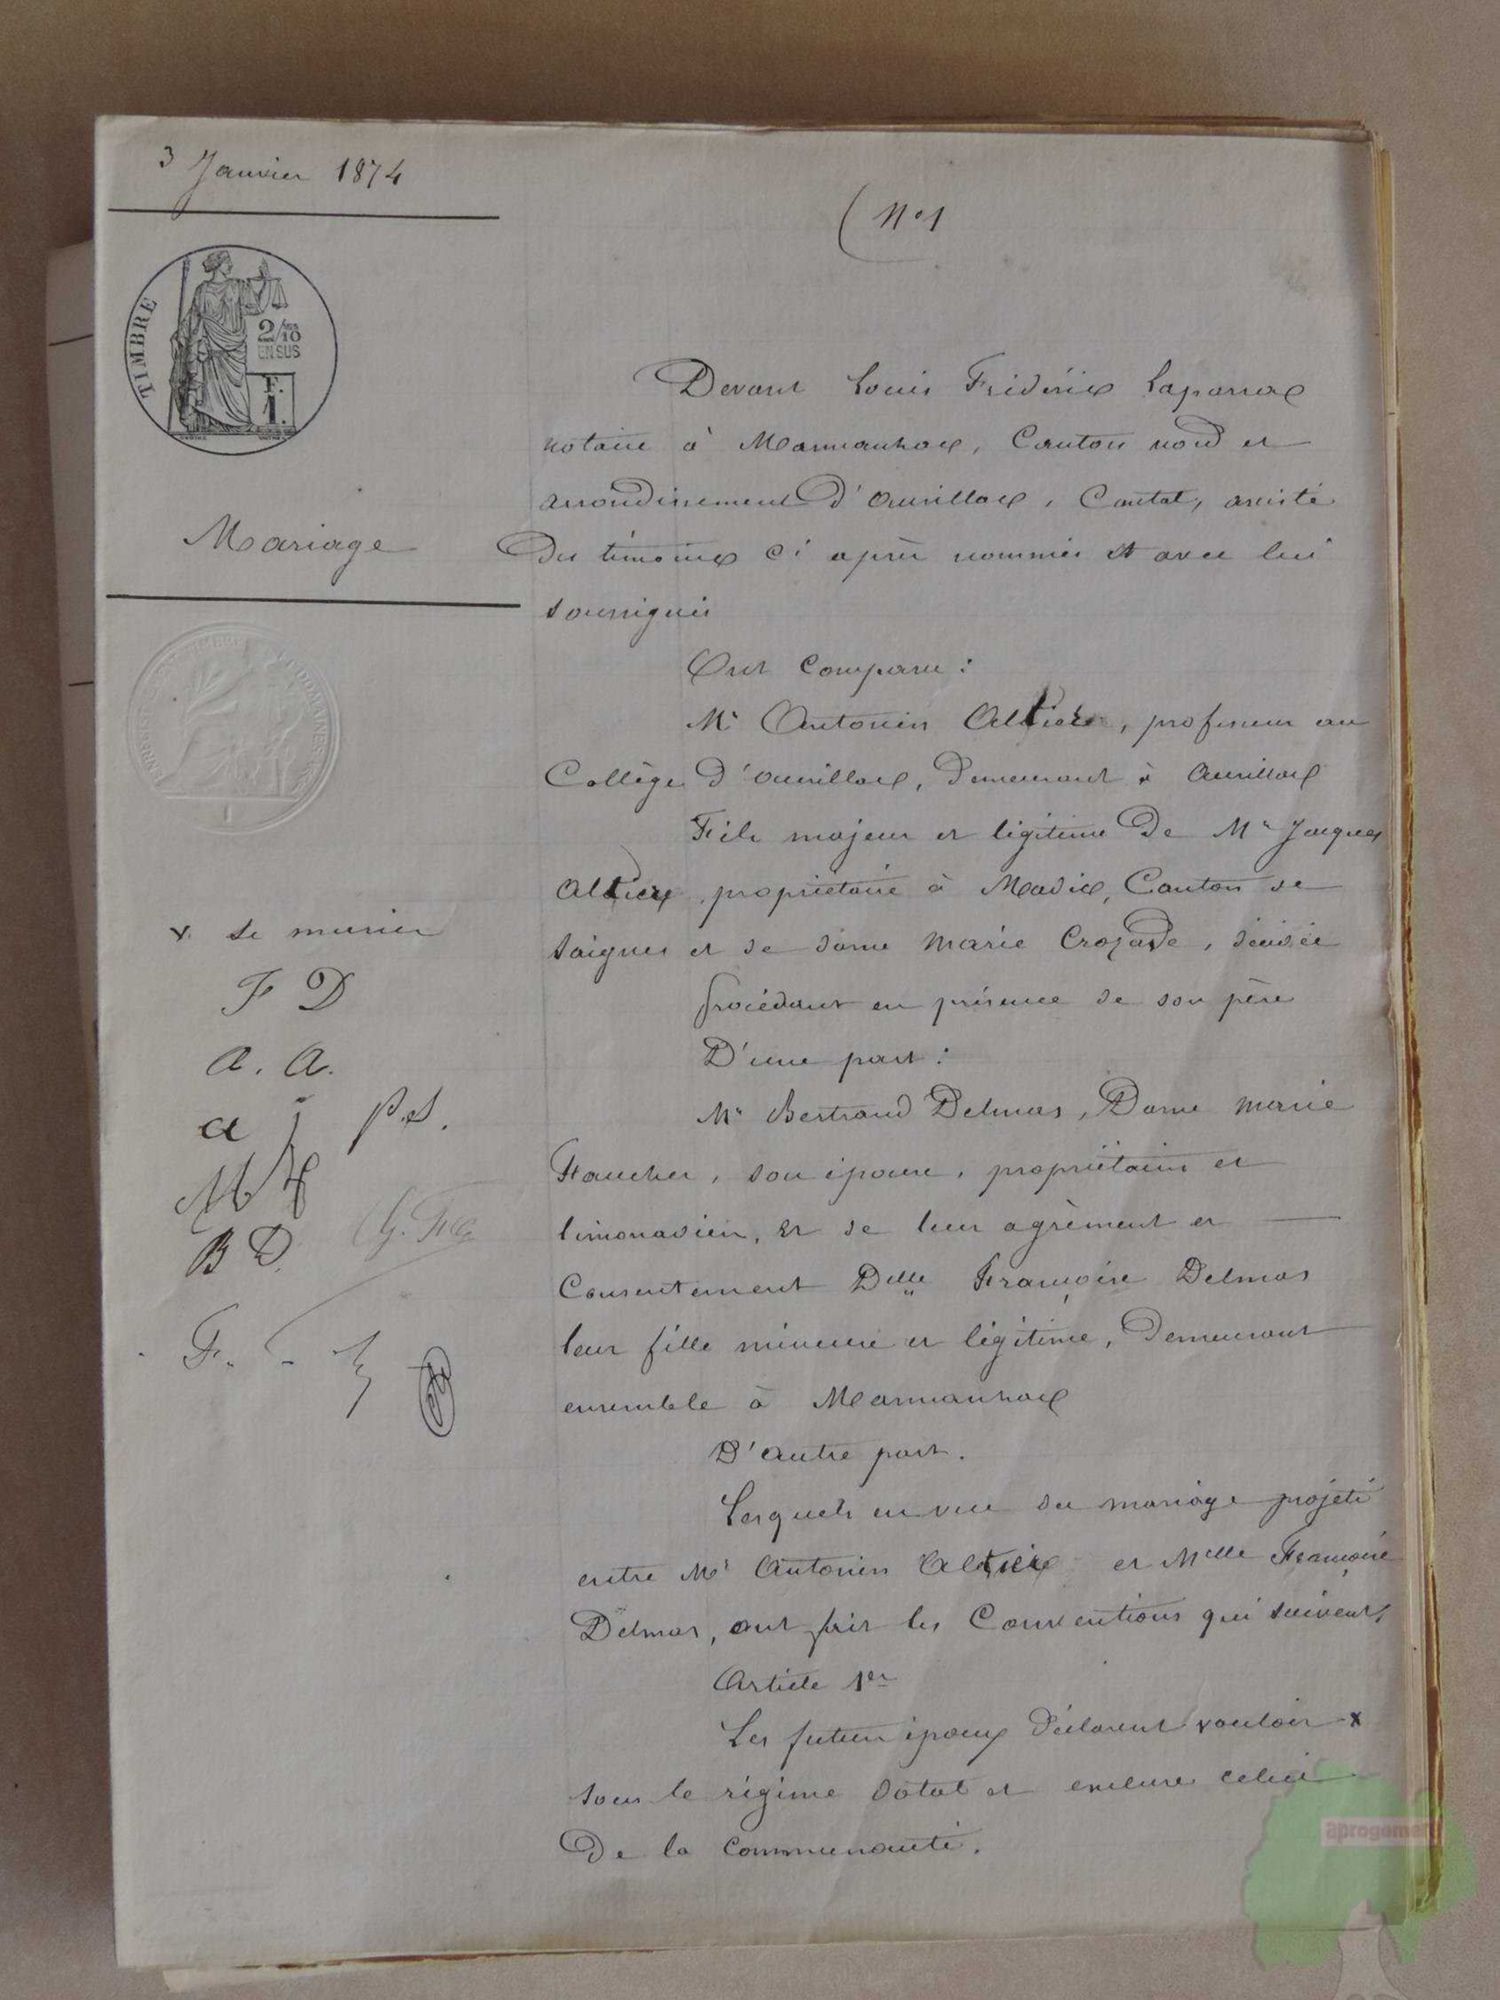 3 Janvier 1874
(N° 1
TIMBRE
2/10
EN SUS
1 F.
Mariage
Devant Louis Frédéric Laparra
notaire à Marmanhac, Canton nord et
arrondissement d'Aurillac, Cantal, assisté
des témoins ci après nommés et avec lui
soussignés
Ont Comparu :
Mr Antonin Altier, professeur au
Collège d'Aurillac, demeurant à Aurillac
Fils majeur et légitime de Mr Jacques
Altier, propriétaire à Madic, Canton de
Saignes et de dame Marie Crozade, décédée
Procédant en présence de son père
D'une part :
Mr Bertrand Delmas, Dame Marie
Faucher, son épouse, propriétaires et
limonadiers, et de leur agrément et
Consentement Delle Françoise Delmas
leur fille mineure et légitime, demeurant
ensemble à Marmanhac
D'autre part.
Lesquels en vue du mariage projeté
entre Mr Antonin Altier et Melle Françoise
Delmas, ont fait les Conventions qui suivent.
Article 1er
Les futurs époux déclarent vouloir x
sous le régime dotal et exclure celui
De la Communauté.
x se marier
F D
A. A.
a j p.s.
M f
B D. G. Fa
aprogemere